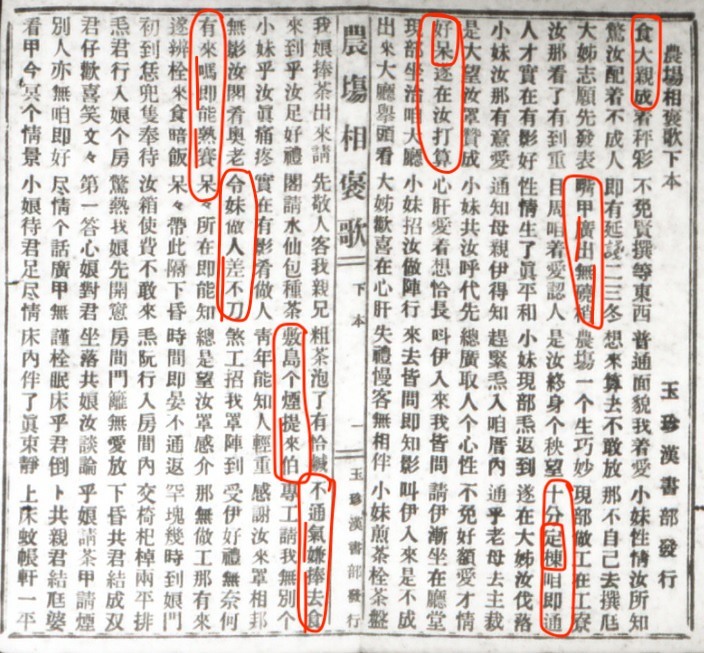 農場相褒歌下本 玉珍漢書部發行
食大親成着秤彩 不免賢撰等東西 普通面貌我着愛 小妹性情汝所知
驚汝配着不成人 即有延誤二三冬 想來算去不敢放 那不自己去撰尪
大姊志願先發表 嘴甲廣出無饒稍 農塲一个生巧妙 現部做工在工寮
汝那看了有到重 目周咱着愛認人 是汝終身个秧望 十分定棟咱即通
人才實在有影好 性情生了眞平和 小妹現部炁返到 遂在大姊汝伐落
小妹汝那有意愛 通知母親伊得知 趕緊炁入咱厝內 通乎老母去主裁
是大望汝罩贊成 小妹共汝呼代先 總廣取人个心性 不免好額愛才情
好呆遂在汝打算 心肝愛着想恰長 叫伊入來我皆問 請伊漸坐在廳堂
現部坐治咱大廳 小妹招汝做陣行 來去皆問即知影 叫伊入來是不成
出來大廳舉頭看 大姊歡喜在心肝 失禮慢客無相伴 小妹煎茶栓茶盤
農塲相褒歌 下本 一 玉珍漢書部發行
我娘捧茶出來請 先敬人客我親兄 粗茶泡了有恰鹹 不通氣嫌捧去食
來到乎汝足好禮 閣請水仙包種茶 敷島个煙提來伯 專工請我無別个
小妹乎汝眞痛疼 實在有影肴做人 青年能知人輕重 感謝汝來罩相邦
無影汝閣肴奧老 令妹做人差不刀 煞工招我罩陣到 受伊好禮無奈何
有來嗎即能熟賽 呆々所在即能知 總是望汝罩感介 那無做工那有來
遂辨栓來食暗飯 呆々帶此隔下昏 時間即晏不通返 罕塊幾時到娘門
初到恁兜隻奉待 汝箱使費不敢來 炁阮行入房間內 交椅杞棹兩平排
炁君行入娘个房 驚熱我娘先開窻 房間門籬無愛放 下昏共君結成双
君仔歡喜笑文々 第一答心娘對君 坐落共娘汝談論 乎娘請茶甲請煙
別人亦無咱即好 尽情个話廣甲無 謹栓眠床乎君倒 卜共親君結尪婆
看甲今冥个情景 小娘待君足尽情 床內伴了眞束靜 上床蚊帳軒一平